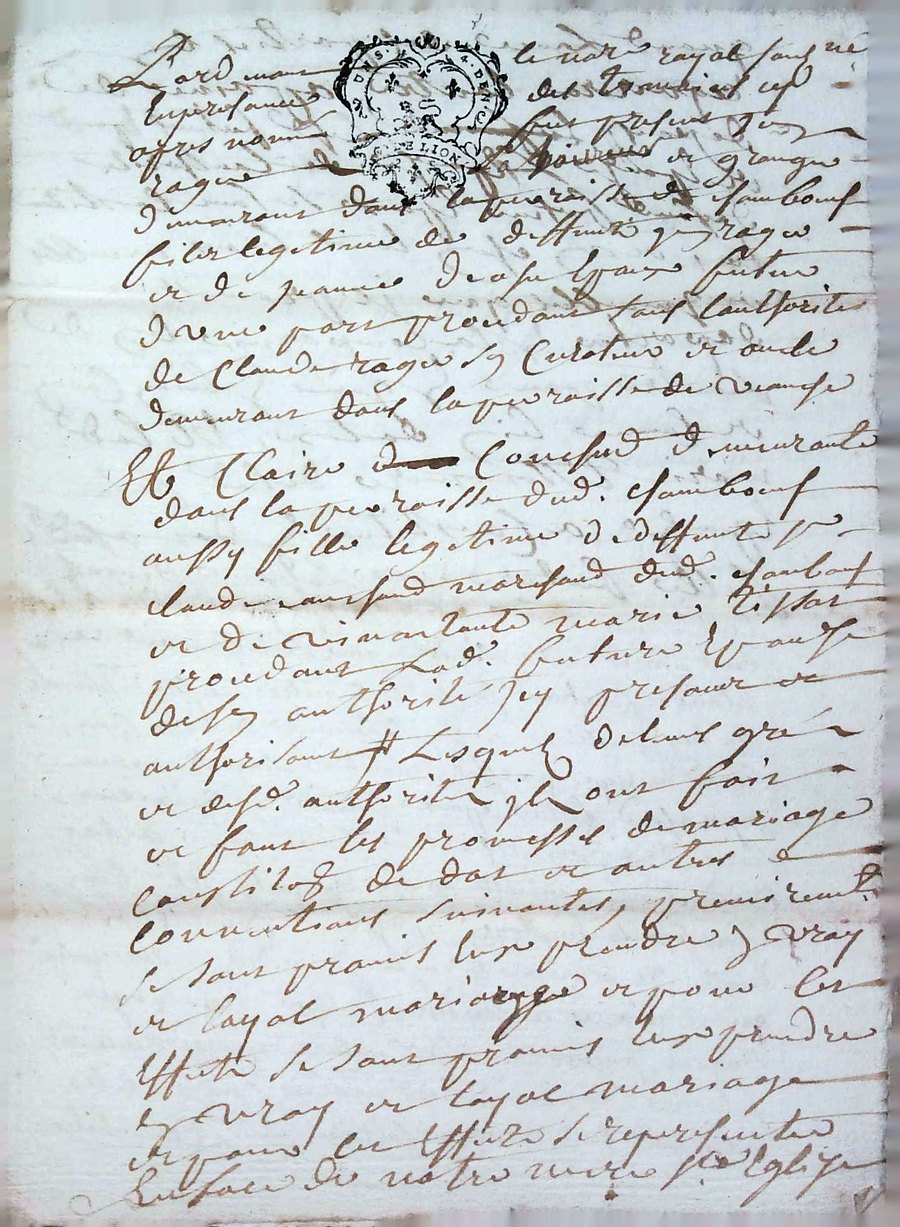 Pard mant le no.re royal soubz.ne
En presance des tesmoings cy
apres nommé fut present Jean
rague et grangé
demeurant dans la parroisse de chambeuf
filz legitime de deffunt jean rague
et de jeanne espoux futur
d'une part procedant soubs l'authorité
de Claude rague so Curateur et oncle
demeurant dans la parroisse de veauche
Et Claire Couchud demeurante
dans la parroisse dud. chambeuf
aussy fille legitime de deffunt s.r
claude couchoud marchand dud. chambeuf
et de vivante marie tissot
procedant lad. future Epouse
de son authorité icy presente et
authorisant # Lesquelz de leurs gré
et desd. authorité ilz ont fait
et font les promesses de mariage
constitôn de dot et autres
conventions suivantes, premierem.t
se sont promis eux prendre en vray
et loyal mariage et pour les
Effects se sont promis eux prendre
en vray et loyal mariage
et pour les Effects se representer
En face de notre mere s.te Eglize